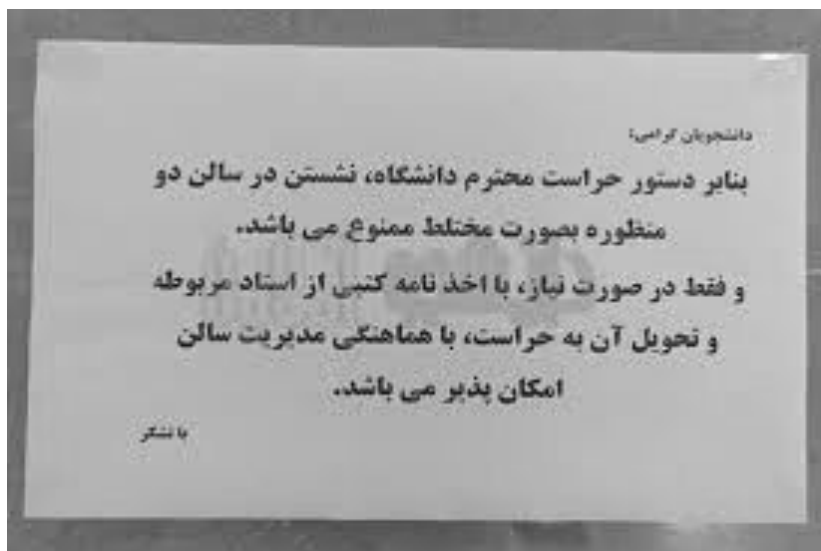 دانشجویان گرامی:
بنابر دستور حراست محترم دانشگاه، نشستن در سالن دو
منظوره بصورت مختلط ممنوع می باشد.
و فقط در صورت نیاز، با اخذ نامه کتبی از استاد مربوطه
و تحویل آن به حراست، با هماهنگی مدیریت سالن
امکان پذیر می باشد.
با تشکر